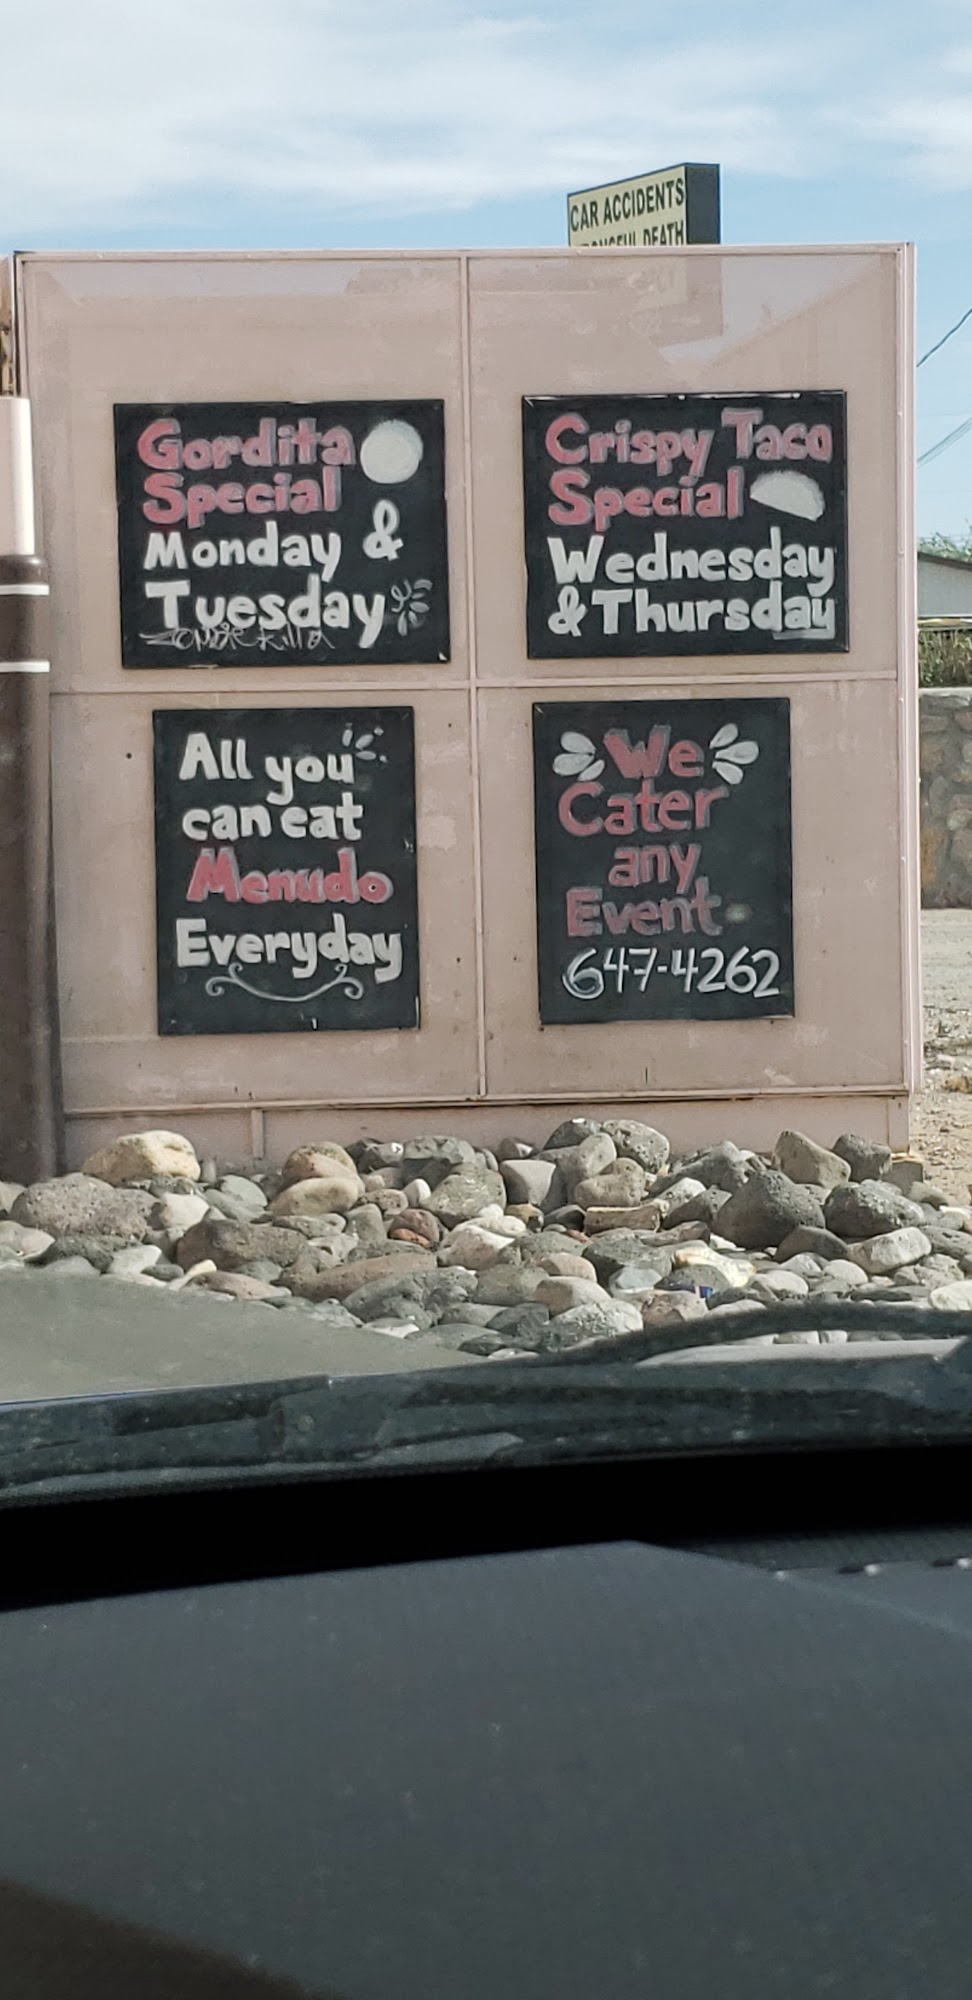 CAR ACCIDENTS
DEATH
Gordita
Special
Monday &
Tuesday
Crispy Taco
Special
Wednesday
& Thursday
All you
can eat
Menudo
Everyday
We
Cater
any
Event
647-4262